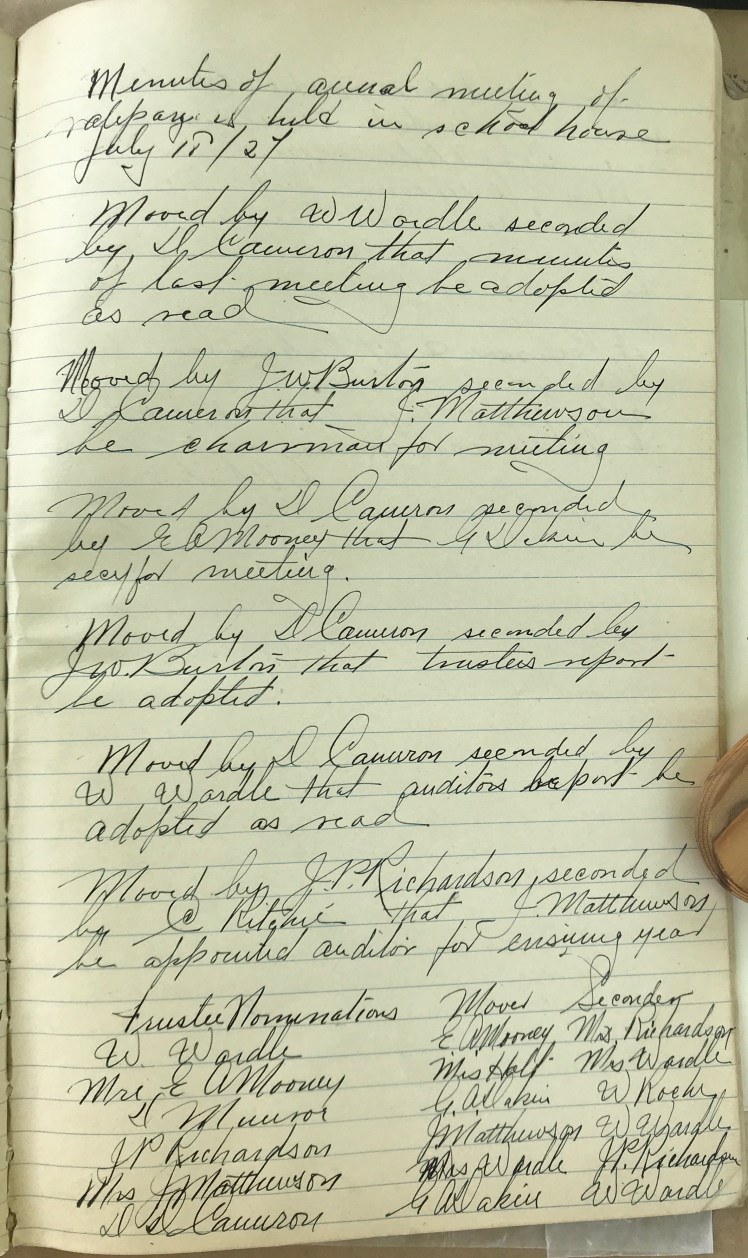 Minutes of anual meeting of
ratepayers held in school house
July 18/27
Moved by W Wardle seconded
by D Cameron that minutes
of last meeting be adopted
as read
Moved by J.W. Burton seconded by
D Cameron that J. Matthewson
be charman for meeting
Moved by D Cameron seconded
by E A Mooney that G Dakin be
secy for meeting.
Moved by D Cameron seconded by
J.W. Burton that trustees report
be adopted.
Moved by D Cameron seconded by
W Wardle that auditors report be
adopted as read
Moved by J.P. Richardson seconded
by C Ritchie that J. Matthewson
be appointed auditor for ensuing year
Trustee Nominations Mover Seconder
W. Wardle E A Mooney Mrs. Richardson
Mrs E A Mooney Mrs Wardle
D Munroe G. A Dakin W Roche
J P Richardson J Matthewson W Wardle
Mrs J Matthewson Mrs Wardle J P. Richardson
D D Cameron G A Dakin W Wardle